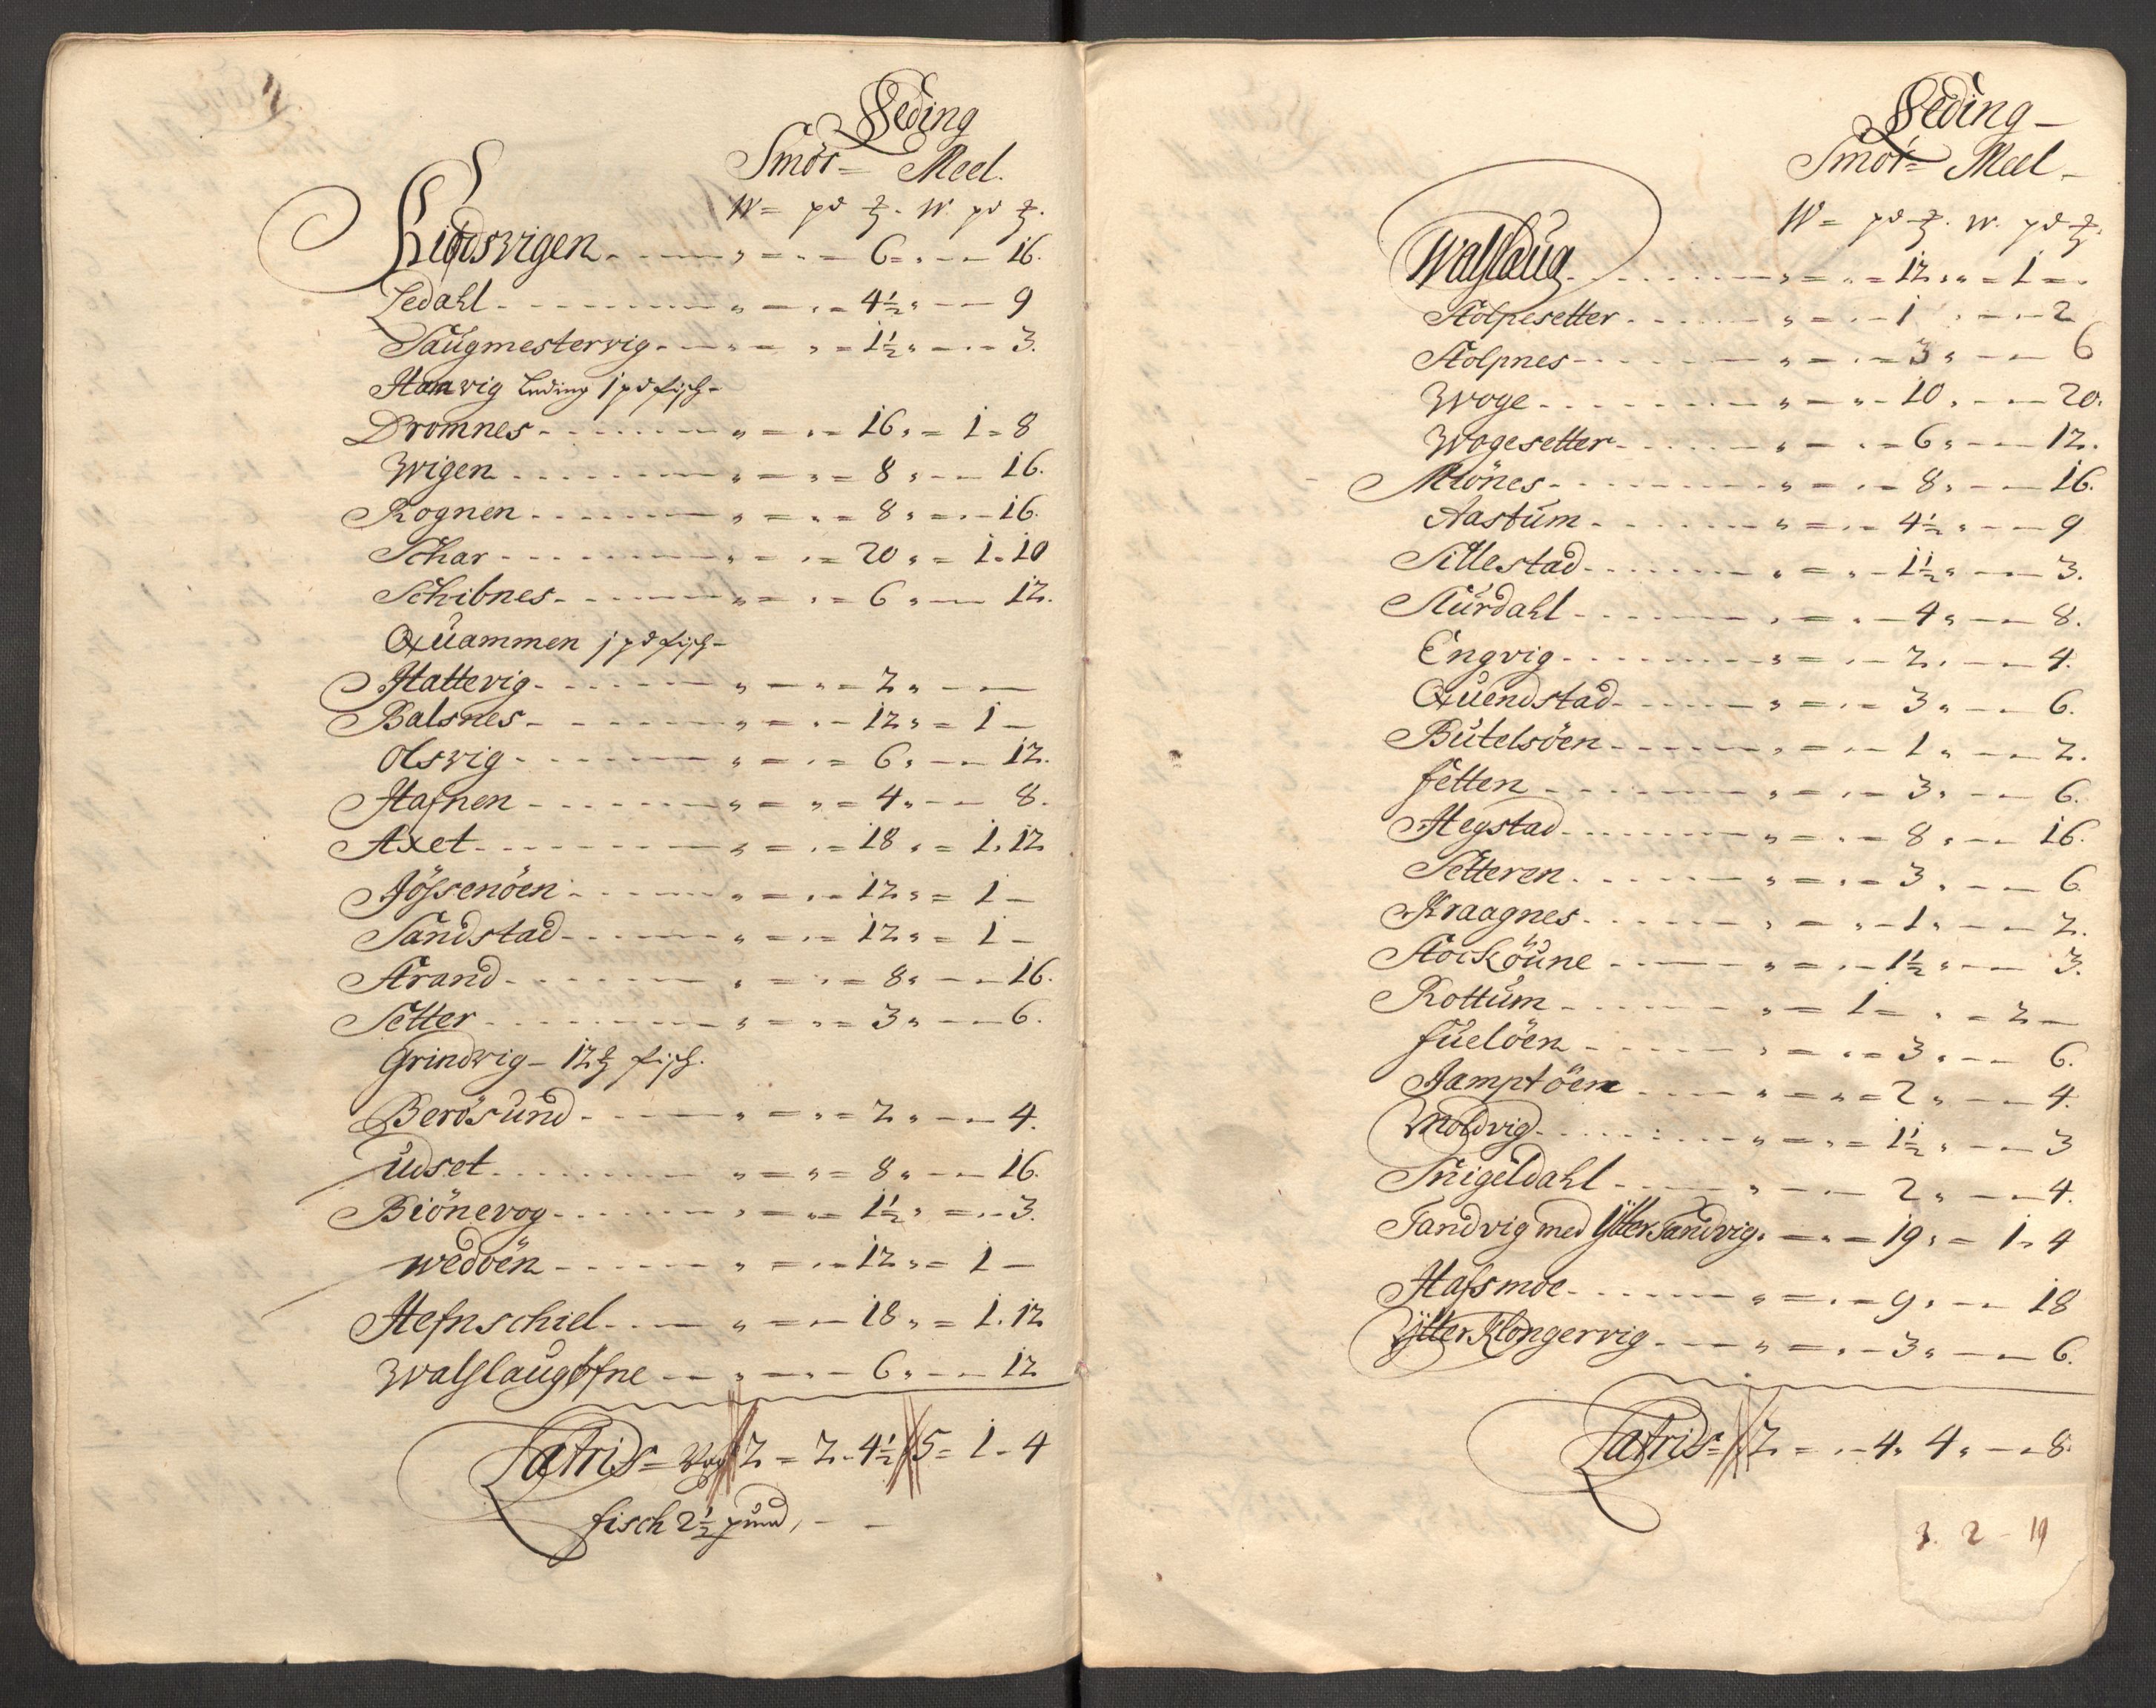 Leding
Smör= Meel.
W= pd ℔. W. pd ℔.
Kiødsvigen - - - „ = „ = 6 = „ - - 16.
Ledahl - - - „ = „ = 4½ „ - - 9
Saugmestervig - - - „ = „ = 1½ „ - - 3.
Haavig Leding 1 pd fisch -
Dromnes - - - „ = „ = 16 „ = 1 = 8
Wigen - - - „ = „ = 8 „ - - 16.
Rognen - - - „ = „ = 8 „ = - 16.
Schar - - - „ = „ = 20 „ = 1. 10
Schibnes - - - „ = „ = 6 „ - - 12.
Quammen 1 pd fisch -
Hattevig - - - „ = „ = 2 „ - -
Balsnes - - - „ = „ - 12 „ = 1 -
Olsvig - - - „ = „ = 6 „ - - 12.
Hafnen - - - „ = „ = 4 „ - - 8.
Axet - - - „ = „ = 18 „ = 1. 12
Jössenöen - - - „ = „ = 12 „ = 1 -
Sandstad - - - „ = „ = 12 „ = 1 -
Strand - - - „ = „ = 8 „ - - 16.
Setter - - - „ = „ = 3 „ - - 6.
Grindvig - 12 ℔ fisch.
Berösund - - - „ = „ = 2 „ - - 4.
Udset - - - „ = „ = 8 „ - - 16.
Biönevog - - - „ = „ = 1½ „ = - 3.
Wedöen - - - „ = „ = 12 „ = 1 -
Hefnschiel - - - „ = „ - 18 „ = 1. 12
Walslaugöfne - - „ - „ - 6 „ - - 12
Latris = Vog 2 = 2 - 4½ 5 = 1 - 4
fisch 2½ pund, - -
Leding -
Smör= Meel -
W= pd ℔. W. pd ℔.
Walslaug - - - „ = „ = 12 „ „ = 1 = „
Stolpesetter - - - „ = „ - 1 „ - - 2
Stolpnes - - - „ = „ = 3 „ - - 6
Woge - - - „ = „ - 10 „ - - 20.
Wogesetter - - - „ = „ = 6 „ - - 12.
Miönes - - - „ = „ - 8 „ - - 16.
Aastum - - - „ = „ - 4½ „ - - 9
Sillestad - - - „ = „ - 1½ „ - - 3.
Sturdahl - - - „ = „ - 4 „ - - 8.
Engvig - - - „ = „ - 2 „ - - 4.
Quendstad - - - „ = „ = 3 „ - - 6.
Butelsöen - - - „ = „ - 1 „ - - 2.
fetten - - - „ = „ = 3 „ - - 6.
Hegstad - - - „ = „ = 8 „ - - 16.
Setteren - - - „ = „ = 3 „ - - 6
Kraagnes - - - „ = „ - 1 „ - - 2.
Stocköune - - - „ = „ - 1½ „ - - 3.
Rottum - - - „ = 1 = „ = 2 -
fuelöen - - - „ = „ = 3 „ - - 6.
Jamptöen - - - „ = „ = 2 „ - - 4.
Moldvig - - - „ = „ = 1½ „ - - 3
Snigeldahl - - - „ - - 2 „ - - 4.
Sandvig med Ytter Sandvig „ = „ - 19 „ = 1 „ 4
Hafsmoe - - - „ = „ = 9 „ - - 18
Ytter Klongervig - - - „ = „ - 3 „ - - 6.
Latris = 2 = „ - 4 „ 4 „ - - 8.
3. 2 - 19